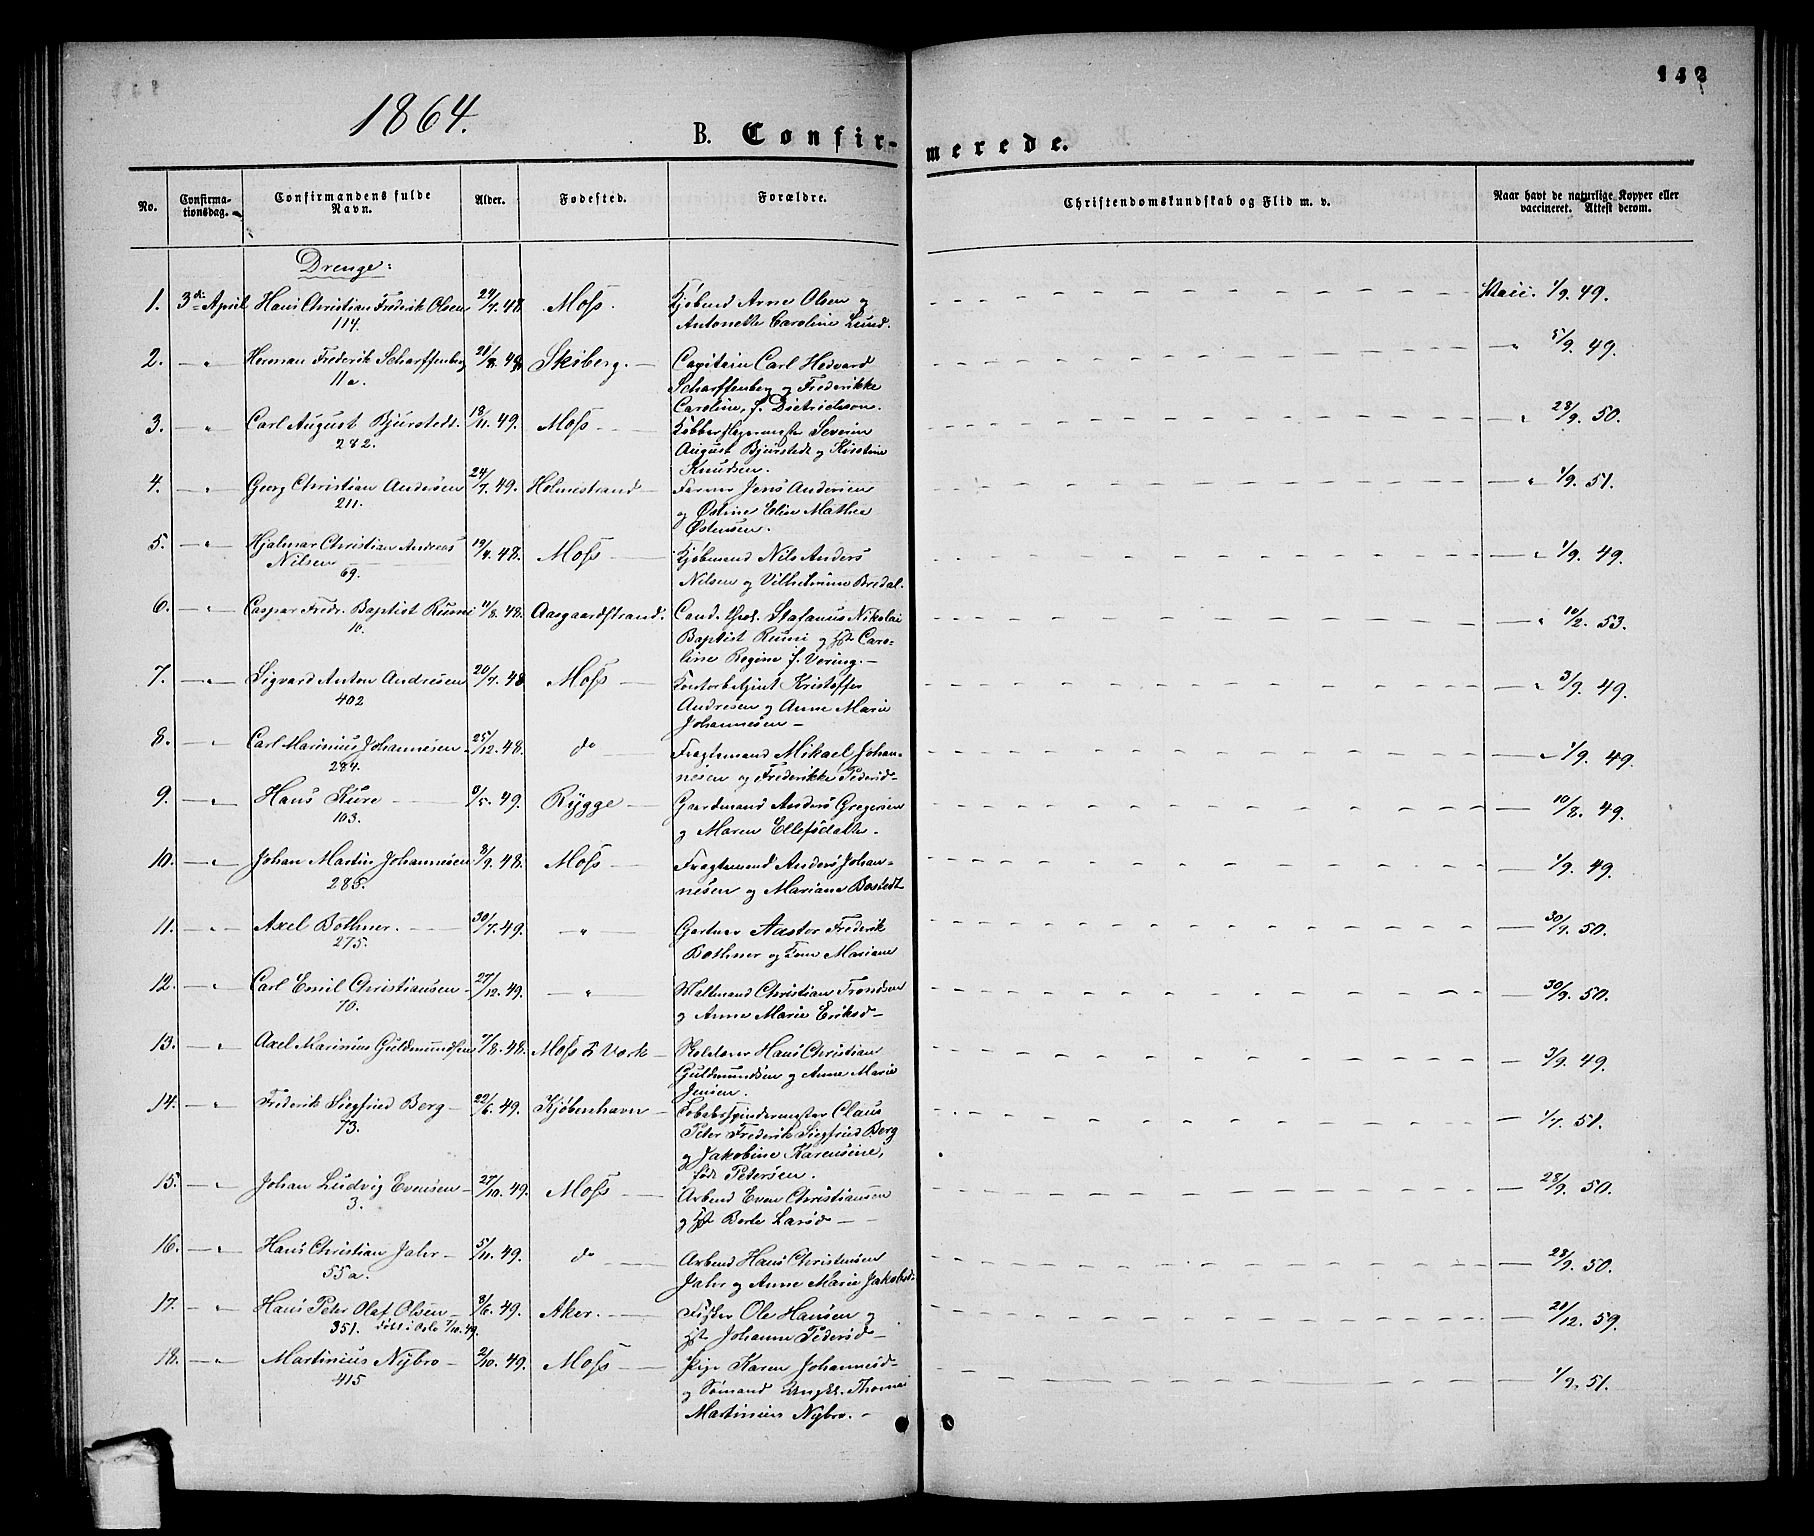 142
1864.
B. Confir-
merede.
No.
Confirma-
tionsdag.
Confirmandens fulde
Navn.
Alder.
Fødested.
Forældre.
Christendomskundskab og Flid m. v.
Naar havt de naturlige Kopper eller
vaccineret. Attest derom.
Drenge:
1. 3die April Hans Christian Frederik Olsen 24/7. 48. Moss. Kjøbmd Arne Olsen og 1/9. 49.
114. Antonette Caroline Lund.
2. — " Herman Frederik Scharffenberg 21/8. 48 Skiberg. — Capitain Carl Hedvard — " 5/9. 49.
11a. Scharffenberg og Frederikke
Caroline, f. Dietrichson.
3. — " Carl August Bjurstedt. 18/11. 49. Moss — Kobberslagermester Severin — " 28/9. 50.
282. August Bjurstedt og Kirstine
Knudsen.
4. — " Georg Christian Andersen 24/7. 49. Holmestrand — Farver Jens Andersen — " 1/9. 51.
211. og Østine Elen Mathea
Østensen.
5. — " Hjalmar Christian Andreas 19/4. 48. Moss — Kjøbmand Nils Anders — " 1/9. 49.
Nilsen — Nilsen og Vilhelmine Bredal.
69.
6. — " Caspar Fredr. Baptist Rumi 11/8. 48. Aasgaardstrand. Cand. theol. Stefanus Nikolai — " 10/2. 53.
10. Baptist Rumi og Hst Caro-
line Regine f. Vering. —
7. — " Sigvard Anton Andresen 20/7. 48 Moss — Kontorbetjent Kristoffer — " 3/9. 49.
402 Andresen og Anne Marie
Johannesen —
8. — " Carl Marinius Johannesen — 25/12. 48. do — Fragtemand Mikael Johan- — " 1/9. 49.
284. nesen og Frederikke Pedersd —
9. — " Hans Kure — 8/5. 49. Rygge — Gaardmand Anders Gregersen — 10/8. 49.
103. og Maren Ellefsdatter.
10. — " Johan Martin Johannesen 8/9. 48. Moss — Fragtemand Anders Johan- — 1/9. 49.
285. nesen og Mariane Bostedt
11. — " Axel Bothner. — 30/7. 49. — " — Gartner Aastor Frederik — 30/9. 50.
275. Bothner og Mariane
12. — " Carl Emil Christiansen — 27/12. 49. — " — Maltmand Christian Trondsen — 30/9. 50.
70. og Anne Marie Eriksd —
13. — " Axel Marinius Guldmundsen 7/8. 48. Moss Værk — Hans Christian — 3/9. 49.
Guldmundsen og Anne Marie
Jensen.
14. — " Frederik Siegfried Berg — 22/6. 49. Kjøbenhavn — Tobaksspindermester Claus — 1/7. 51.
73. Peter Frederik Siegfried Berg
og Jakobine Karensine,
født Petersen.
15. — " Johan Ludvig Evensen — 27/10. 49. Moss — Arbmd Even Christiansen — 28/9. 50.
3. og Hst Berte Larsd —
16. — " Hans Christian Jahr — 5/11. 49. do — Arbmd Hans Christensen — 28/9. 50.
55a. Jahr og Anne Marie Jakobsd.
17. — " Hans Peter Olaf Olsen — 8/6. 49. Aker. — Fisker Ole Hansen og — 21/12. 59.
351. Født i Oslo 7/10. 49. Hst Johanne Pedersd —
18. — " Martinius Nybro — 2/10. 49. Moss — Pige Karen Johannesd — — 1/9. 51.
415 og Sømand Ungk. Thomas
Martinius Nybro. —